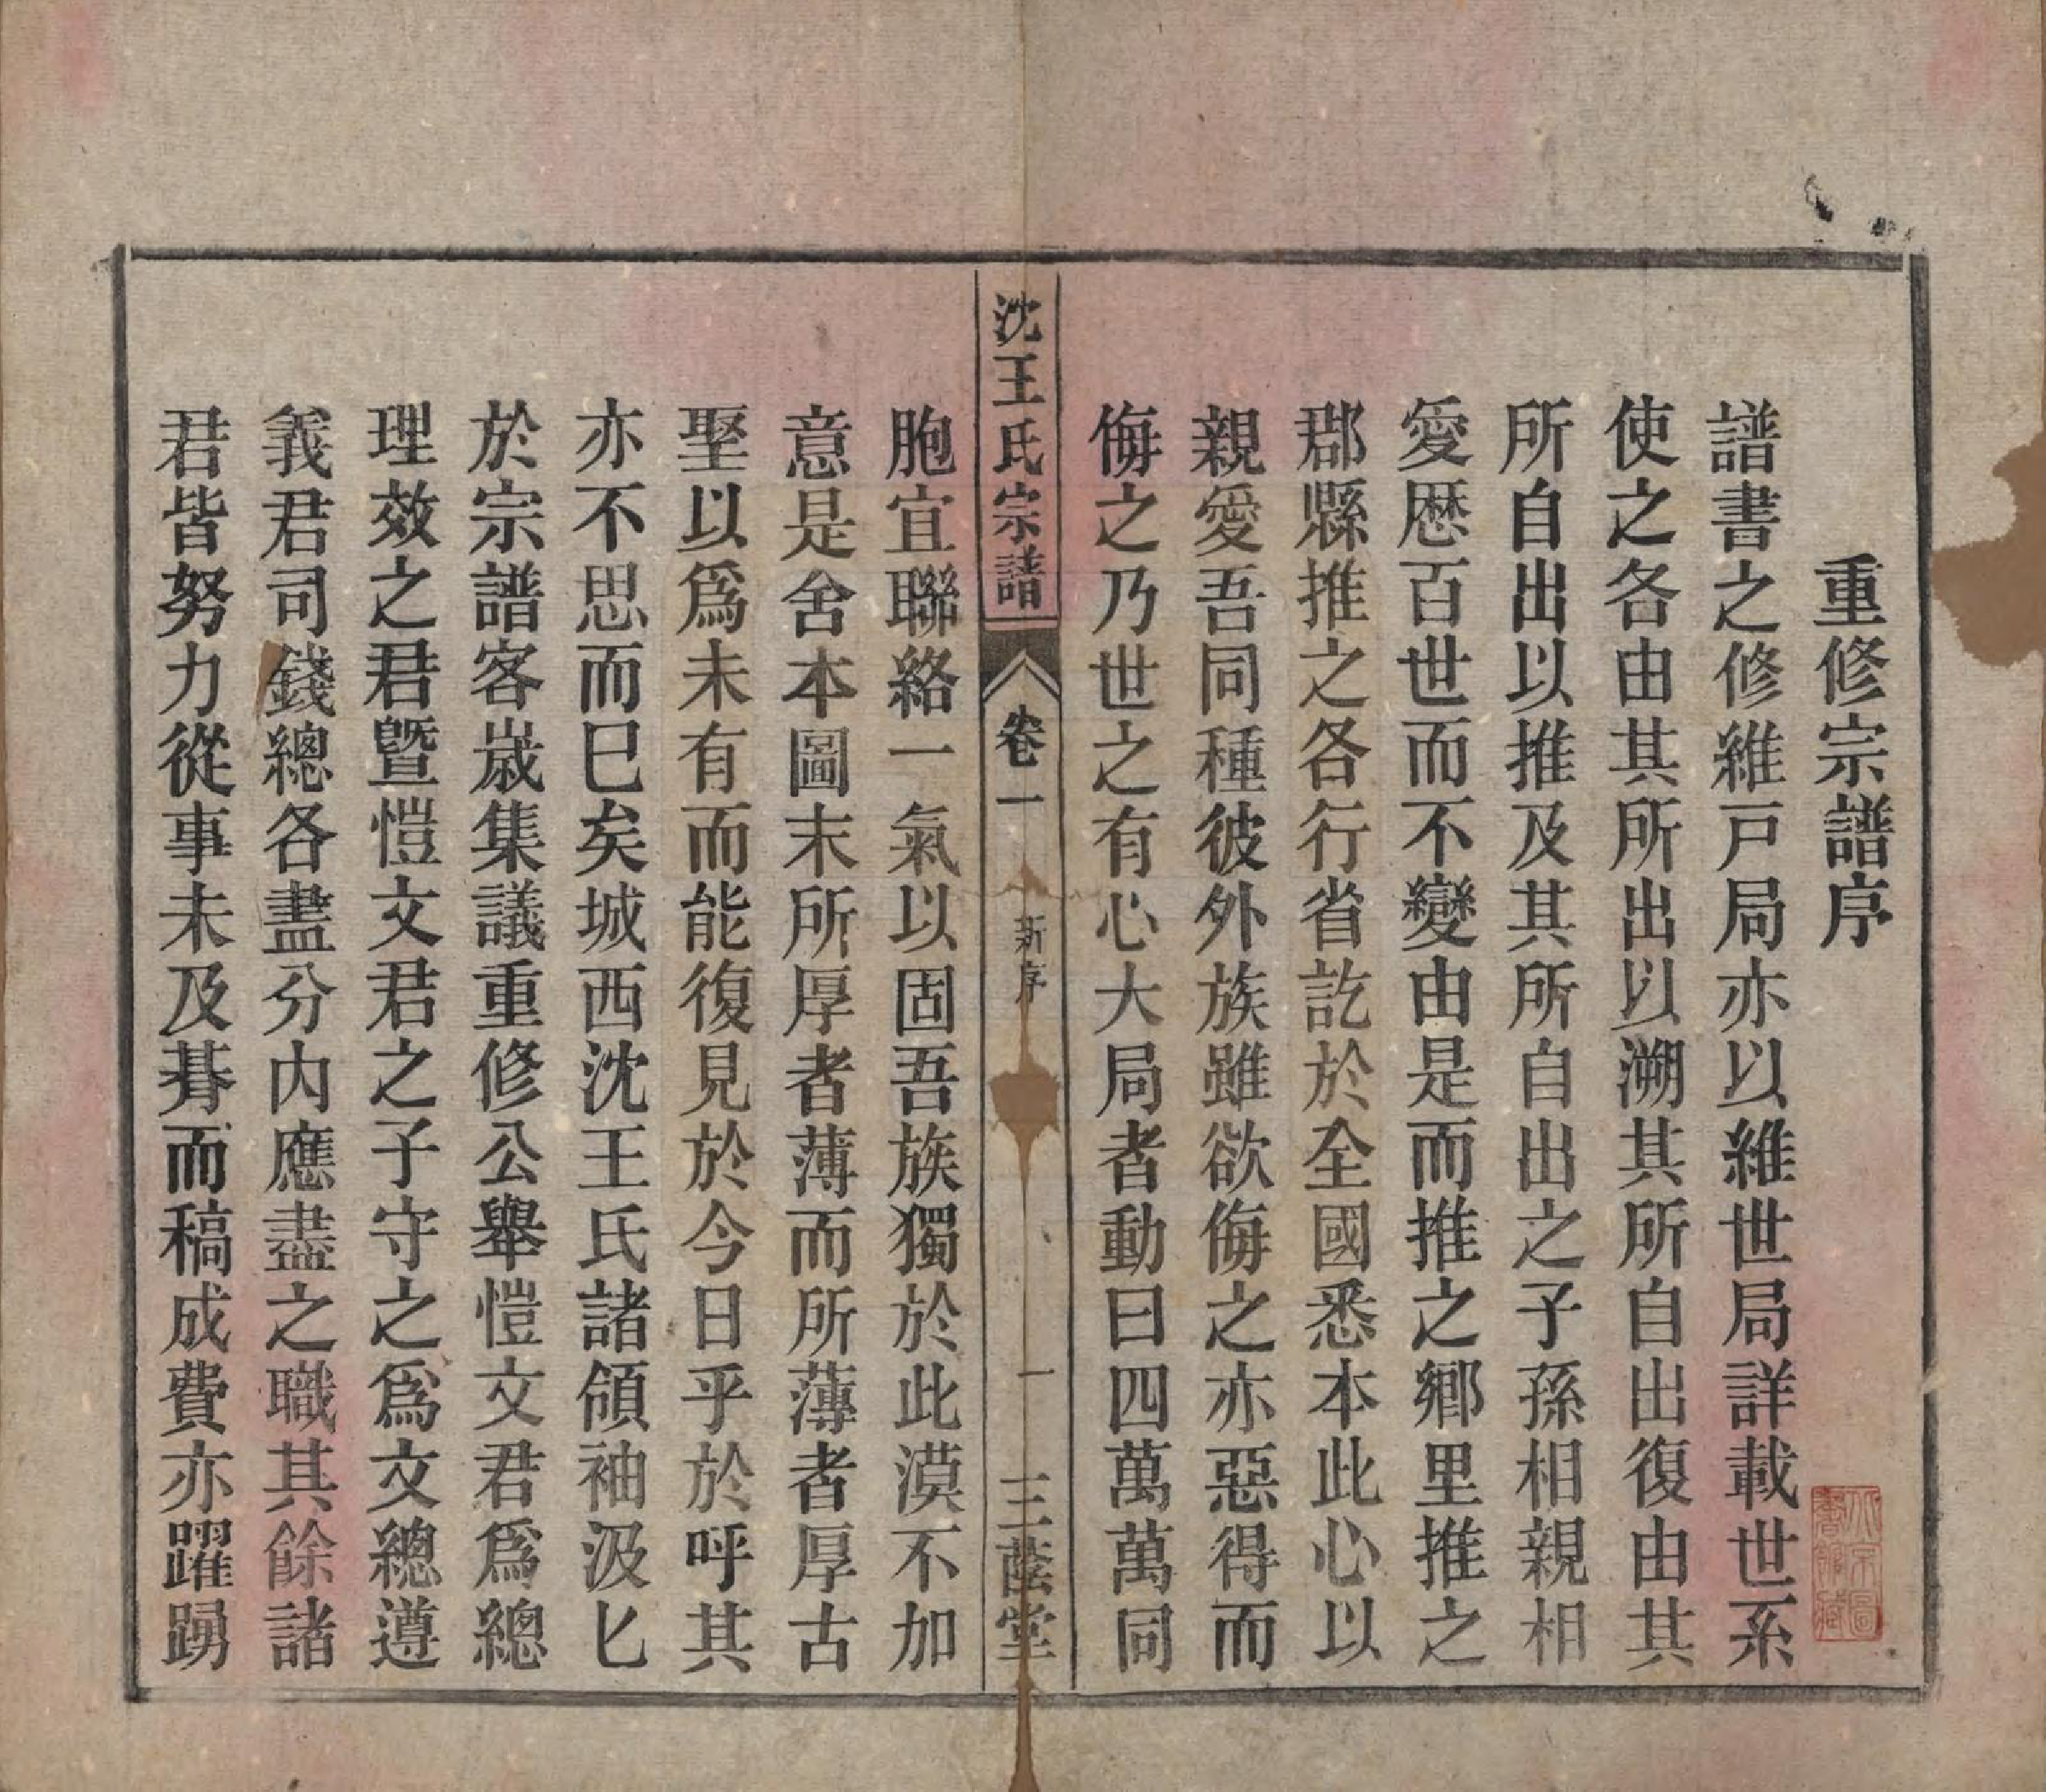 重修宗譜序
譜書之修維戸局亦以維世局詳載世系
使之各由其所出以溯其所自出復由其
所自出以推及其所自出之子孫相親相
愛歴百世而不變由是而推之鄉里推之
郡縣推之各行省訖於全國悉本此心以
親愛吾同種彼外族雖欲侮之亦惡得而
侮之乃世之有心大局者動曰四萬萬同
沈王氏宗譜
卷一
新序
一
三蔭堂
胞宜聯絡一氣以固吾族獨於此漠不加
意是舍本圖末所厚者薄而所薄者厚古
聖以為未有而能復見於今日乎於呼其
亦不思而已矣城西沈王氏諸領袖汲匕
於宗譜客歲集議重修公舉愷文君爲總
理效之君暨愷文君之子守之爲文總遵
義君司錢總各盡分內應盡之職其餘諸
君皆努力從事未及朞而稿成費亦躍踴